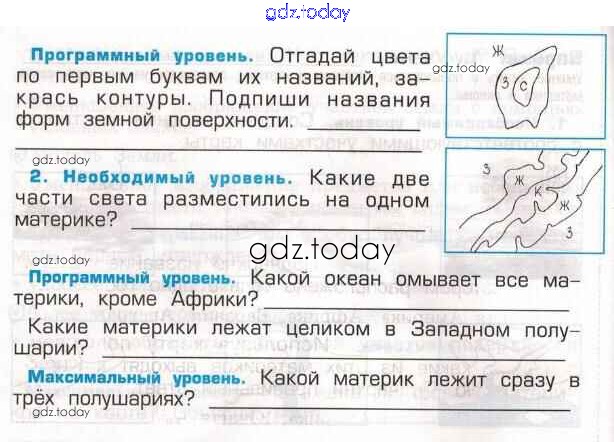 gdz.today
Программный уровень. Отгадай цвета
по первым буквам их названий, за-
крась контуры. Подпиши названия
форм земной поверхности.
Ж
З
С
gdz.today
gdz.today
2. Необходимый уровень. Какие две
части света разместились на одном
материке?
З
Ж
К
Ж
З
gdz.today
gdz.today
Программный уровень. Какой океан омывает все ма-
терики, кроме Африки?
Какие материки лежат целиком в Западном полу-
шарии?
Максимальный уровень. Какой материк лежит сразу в
трёх полушариях?
gdz.today